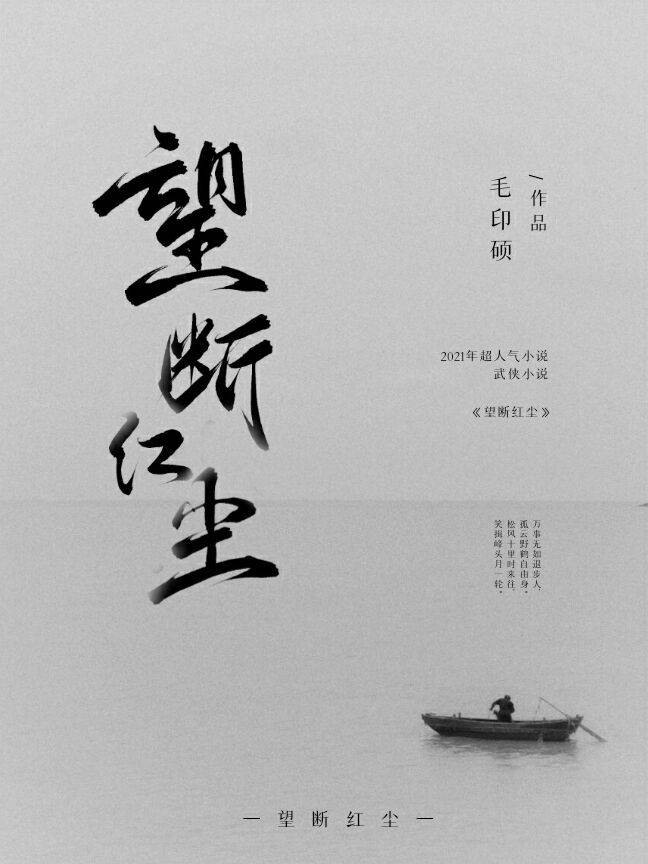 望断红尘
/作品
毛印硕
2021年超人气小说
武侠小说
《望断红尘》
万事无如退步人，
孤云野鹤自由身。
松风十里时来往，
笑揖峰头月一轮。
— 望断红尘 —